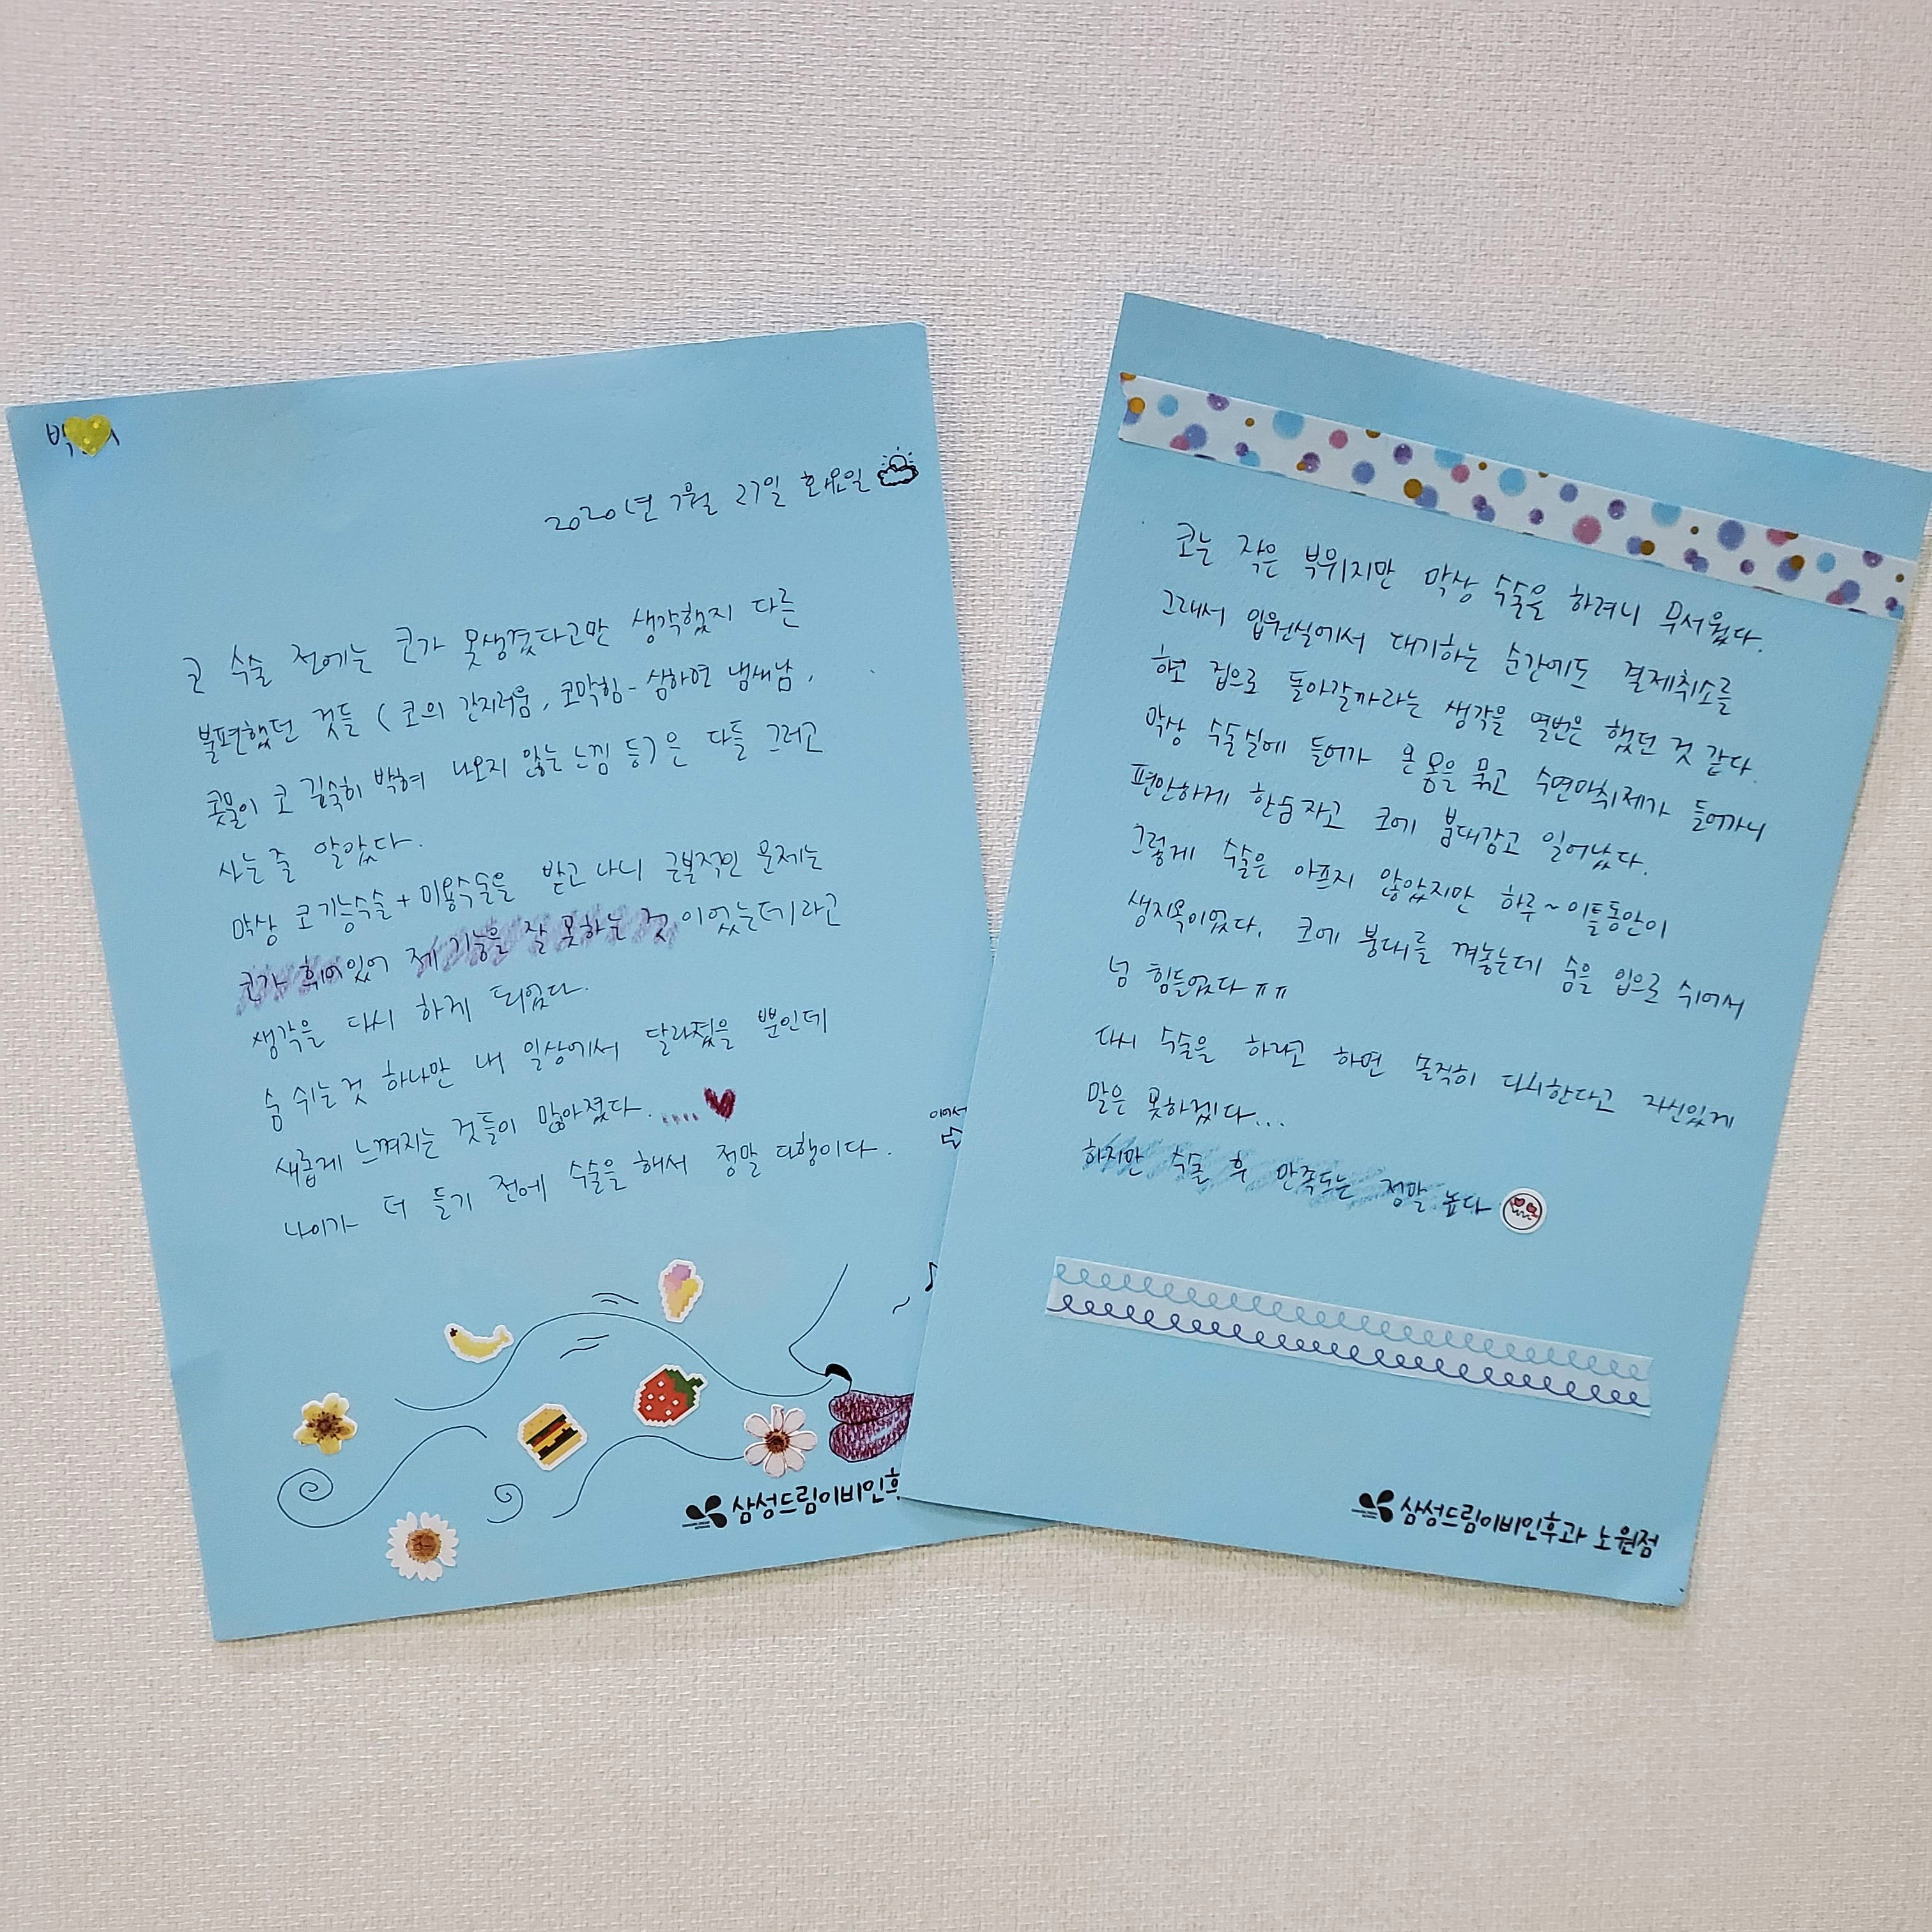 박
2020년 7월 27일 화요일
코 수술 전에는 코가 못생겼다고만 생각했지 다른
불편했던 것들 (코의 간지러움, 코막힘 - 심하면 냄새남,
콧물이 코 깊숙히 박혀 나오지 않는 느낌 등) 은 다들 그러고
사는 줄 알았다.
막상 코기능수술 + 미용수술을 받고 나니 근본적인 문제는
코가 휘어있어 제 기능을 잘 못하는 것 이었는데라고
생각을 다시 하게 되었다.
숨 쉬는 것 하나만 내 일상에서 달라졌을 뿐인데
새롭게 느껴지는 것들이 많아졌다.....
나이가 더 들기 전에 수술을 해서 정말 다행이다.
이어서
삼성드림이비인후
코는 작은 부위지만 막상 수술을 하려니 무서웠다.
그래서 입원실에서 대기하는 순간에도 결제취소를
하고 집으로 돌아갈까라는 생각을 열번은 했던 것 같다.
막상 수술실에 들어가 온 몸을 묶고 수면마취제가 들어가니
편안하게 한숨자고 코에 붕대감고 일어났다.
그렇게 수술은 아프지 않았지만 하루~이틀동안이
생지옥이었다. 코에 붕대를 껴놓는데 숨을 입으로 쉬어서
넘 힘들었다 ㅠㅠ
다시 수술을 하라고 하면 솔직히 다시한다고 자신있게
말은 못하겠다...
하지만 수술 후 만족도는 정말 높다
삼성드림이비인후과 노원점